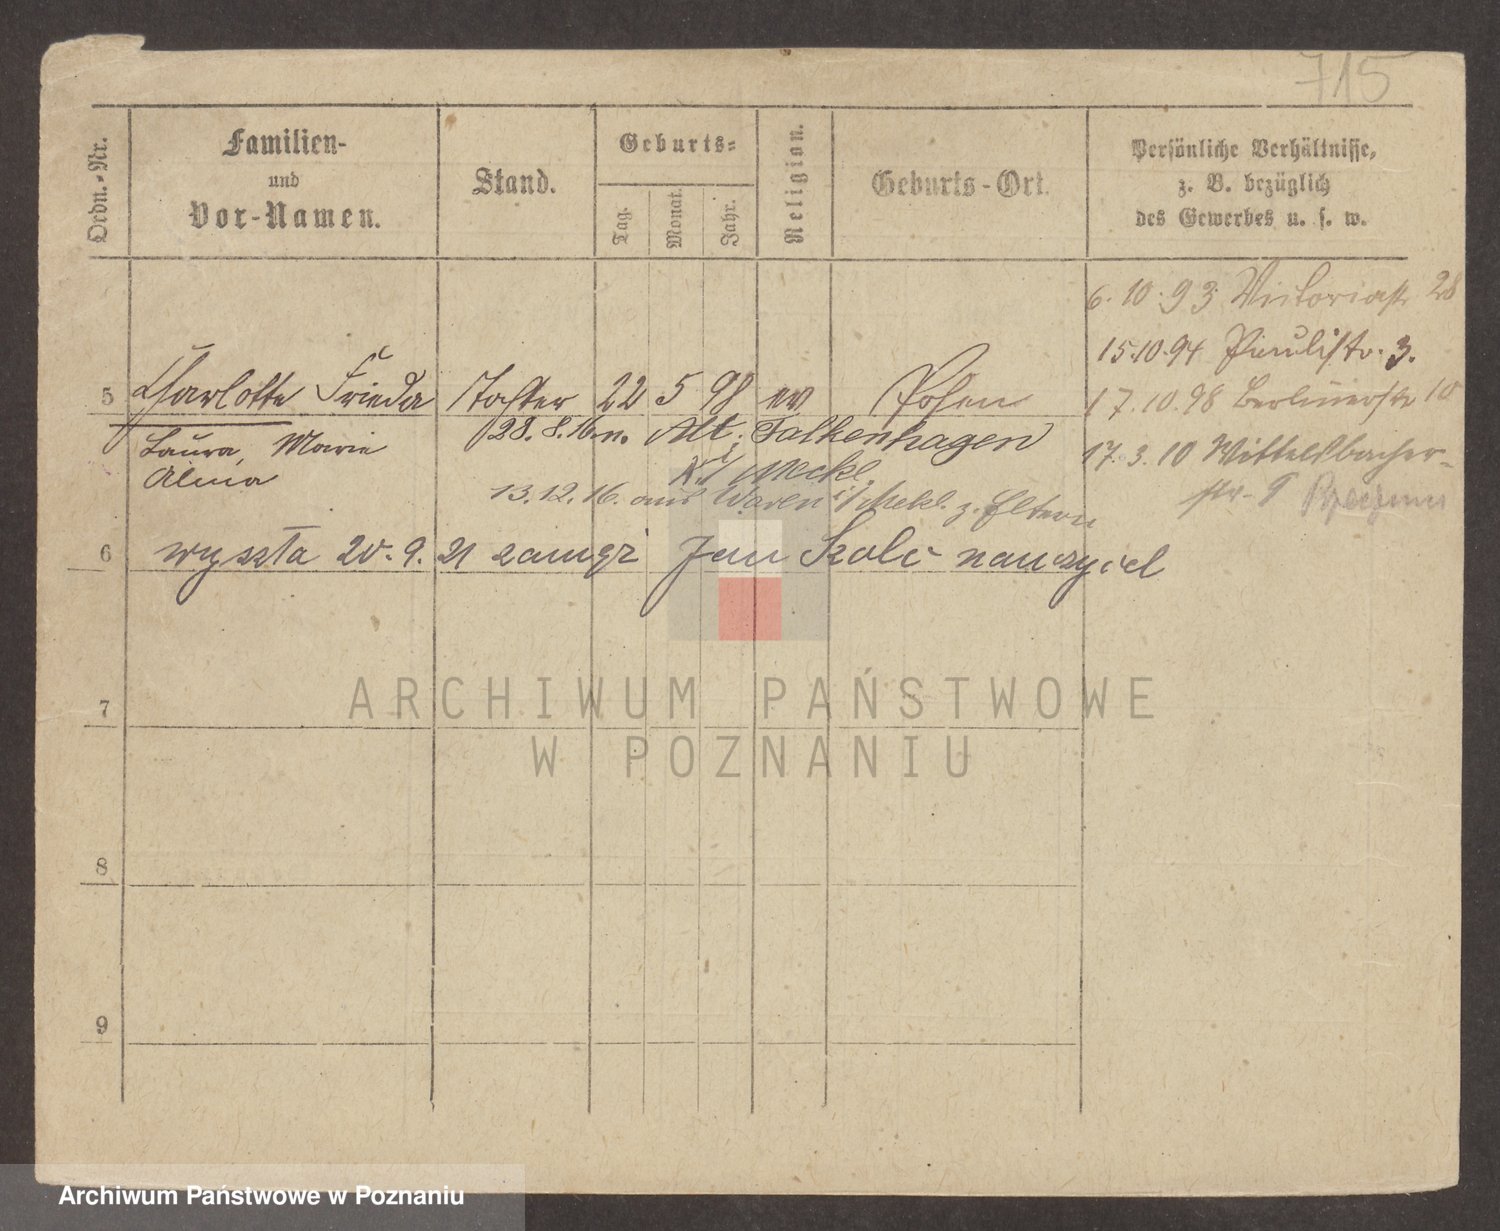 715
Ordn.-Nr.
Familien-
und
Vor-Namen.
Stand.
Geburts-
Tag.
Monat.
Jahr.
Religion.
Geburts-Ort.
Persönliche Verhältnisse,
z. B. bezüglich
des Gewerbes u. s. w.
6.10.93 Victoriastr 28
15.10.94 Paulistr. 3.
17.10.98 Berlinerstr 10
17.3.10 Wittelsbacher-
str.
5 Charlotte Frieda Tochter 22 5 98 ev Posen
Laura, Marie
Alma
28.8.16 n. Alt Falkenhagen
i/ Meckl.
13.12.16. aus Waren i/Mekl. z. Eltern
6 wyszła 20.9.21 zamąż Jan Skolc nauczyciel
7
8
9
ARCHIWUM PAŃSTWOWE
W POZNANIU
Archiwum Państwowe w Poznaniu